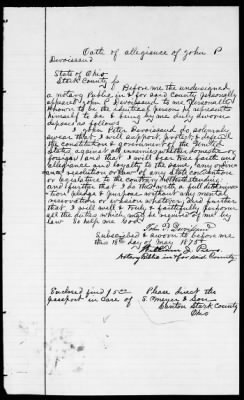 Oath of allegiance of John P
Devoissaud
State of Ohio
Stark County ss
Before me the undersigned
a notary Public in & for said County personally
appeard John P Devoissaud to me personally
known to be the identical person he represents
himself to be & being by me duly sworn
deposes as follows
I John Peter Devoissaud do solemnly
swear that I will support, protect & defend
the constitution & government of the United
States against all enemies, whether domestic or
foreign and that I will bear true faith and
allegiance and loyalty to the same, any ordinance
resolution or law of any State convention
or legislature to the contrary notwithstanding
and further that I do this with a full determination
pledge & purpose without any mental
reservation or evasion whatever. And further
that I will well & truly & faithfully perform
all the duties which may be required of me by
law So help me God
John P. Devoissaud
Subscribed & sworn to before me
this 18th day of May 1875
Notary Public in & for said County
Enclosed find $5.00 Please direct the
passport in care of S. Meyer & Son
Canton Stark County
Ohio